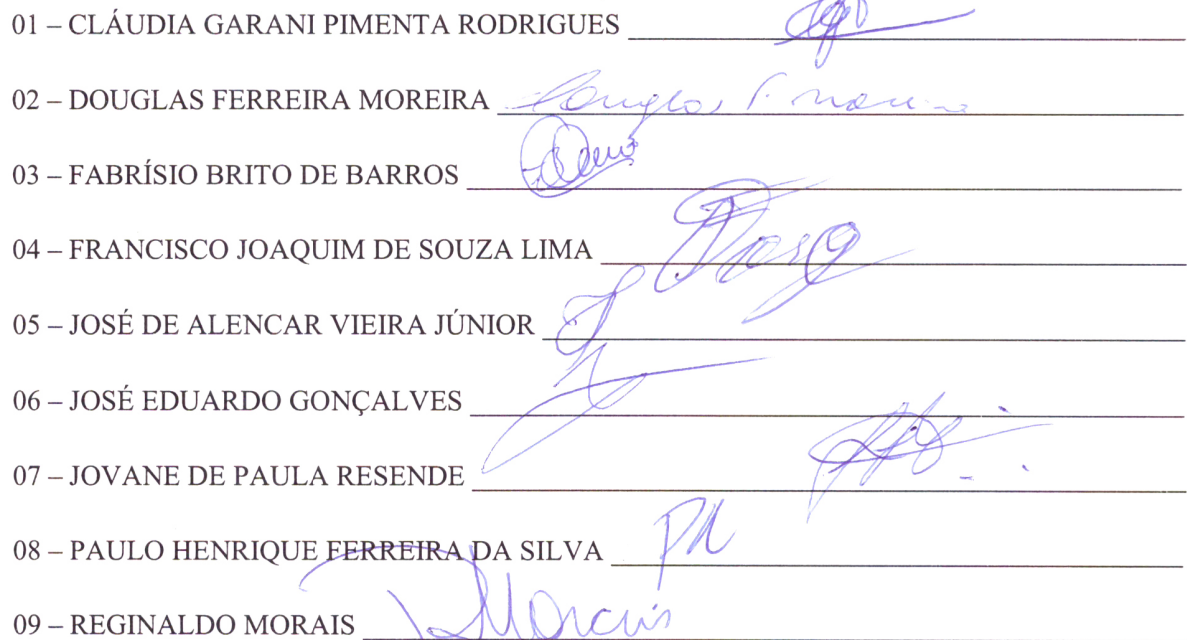 01 – CLÁUDIA GARANI PIMENTA RODRIGUES
02 – DOUGLAS FERREIRA MOREIRA Douglas F.
03 – FABRÍSIO BRITO DE BARROS
04 – FRANCISCO JOAQUIM DE SOUZA LIMA
05 – JOSÉ DE ALENCAR VIEIRA JÚNIOR
06 – JOSÉ EDUARDO GONÇALVES
07 – JOVANE DE PAULA RESENDE
08 – PAULO HENRIQUE FERREIRA DA SILVA
09 – REGINALDO MORAIS Morais